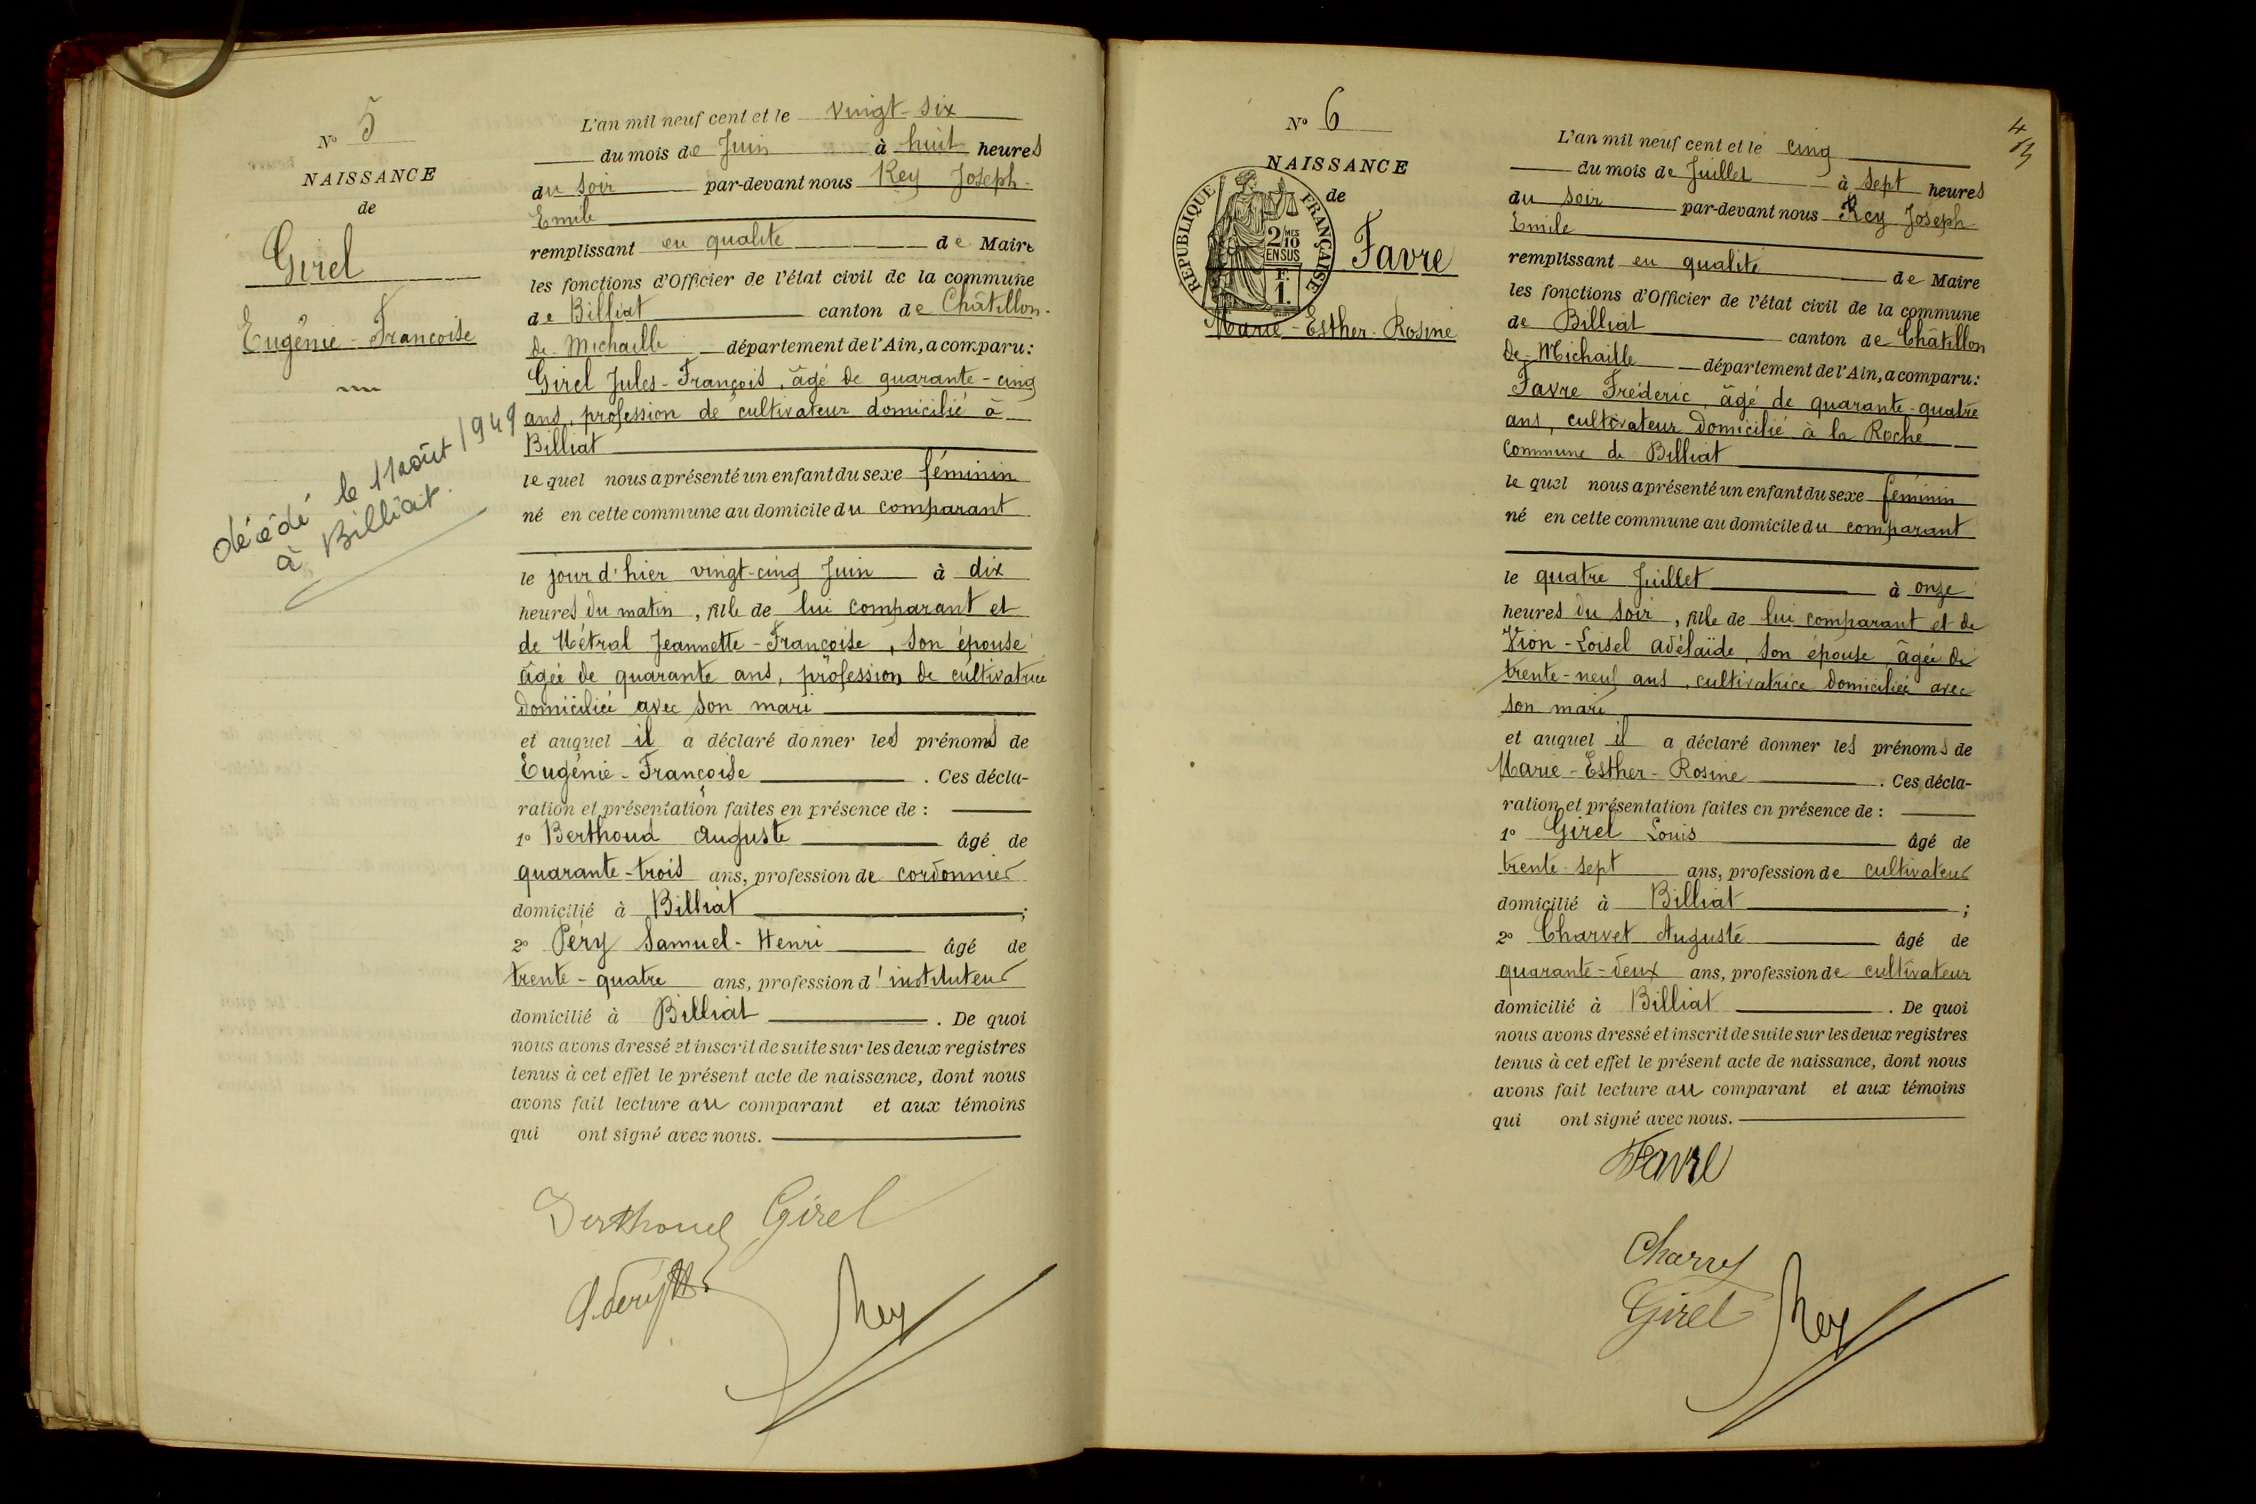 N° 5
NAISSANCE
de
Girel
Eugénie - Françoise
décédé le 11 août 1949
à Billiat.
L'an mil neuf cent et le vingt-six
du mois de Juin à huit heures
du soir par-devant nous Rey Joseph-
Emile
remplissant en qualité de Maire
les fonctions d'Officier de l'état civil de la commune
de Billiat canton de Châtillon-
de-Michaille département de l'Ain, a comparu:
Girel Jules-François, âgé de quarante-cinq
ans, profession de cultivateur domicilié à
Billiat
le quel nous a présenté un enfant du sexe féminin
né en cette commune au domicile du comparant
le jour d'hier vingt-cinq Juin à dix
heures du matin, fille de lui comparant et
de Métral Jeannette-Françoise, son épouse
âgée de quarante ans, profession de cultivatrice
domiciliée avec son mari
et auquel il a déclaré donner les prénoms de
Eugénie-Françoise. Ces décla-
ration et présentation faites en présence de :
1° Berthoud Auguste âgé de
quarante-trois ans, profession de cordonnier
domicilié à Billiat ;
2° Péry Samuel-Henri âgé de
trente-quatre ans, profession d'instituteur
domicilié à Billiat. De quoi
nous avons dressé et inscrit de suite sur les deux registres
tenus à cet effet le présent acte de naissance, dont nous
avons fait lecture au comparant et aux témoins
qui ont signé avec nous.
Berthoud Girel
Rey
4
N° 6
NAISSANCE
de
RÉPUBLIQUE FRANÇAISE
2 MES 10
EN SUS
F.
1.
Favre
Marie-Esther-Rosine
L'an mil neuf cent et le cinq
du mois de Juillet à sept heures
du soir par-devant nous Rey Joseph-
Emile
remplissant en qualité de Maire
les fonctions d'Officier de l'état civil de la commune
de Billiat canton de Châtillon
de-Michaille département de l'Ain, a comparu:
Favre Frédéric, âgé de quarante-quatre
ans, cultivateur domicilié à la Roche
commune de Billiat
le quel nous a présenté un enfant du sexe féminin
né en cette commune au domicile du comparant
le quatre Juillet à onze
heures du soir, fille de lui comparant et de
Vion-Loisel Adélaïde, son épouse, âgée de
trente-neuf ans, cultivatrice domiciliée avec
son mari
et auquel il a déclaré donner les prénoms de
Marie-Esther-Rosine. Ces décla-
ration et présentation faites en présence de :
1° Girel Louis âgé de
trente-sept ans, profession de cultivateur
domicilié à Billiat ;
2° Charvet Auguste âgé de
quarante-deux ans, profession de cultivateur
domicilié à Billiat. De quoi
nous avons dressé et inscrit de suite sur les deux registres
tenus à cet effet le présent acte de naissance, dont nous
avons fait lecture au comparant et aux témoins
qui ont signé avec nous.
Favre
Girel Rey